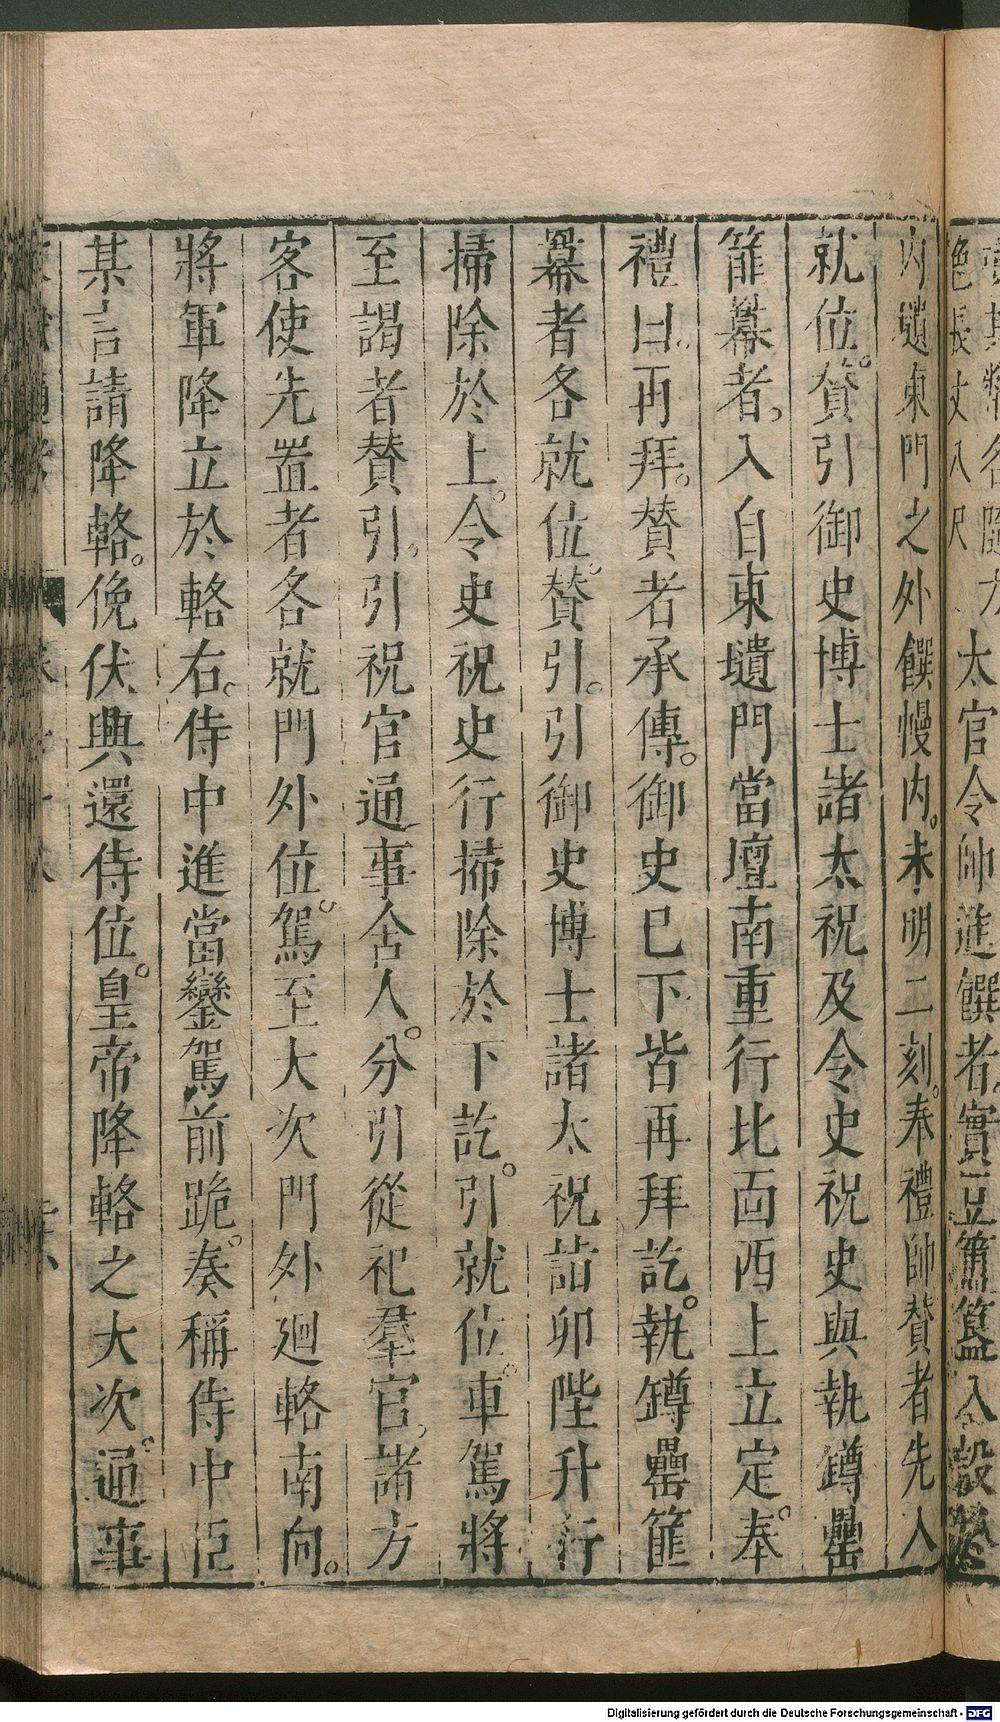 太官令帥進饌者實
入設於
內壝東門之外饌幔內。未明二刻。奉禮帥贊者先入
就位。贊引御史博士諸太祝及令史祝史與執罇罍
篚冪者。入自東壝門當壇南重行北面西上立定。奉
禮曰。再拜。贊者承傳。御史已下皆再拜訖。執罇罍篚
冪者各就位。贊引。引御史博士諸太祝詣卯陛升行
掃除於上。令史祝史行掃除於下訖。引就位。車駕將
至謁者贊引。引祝官通事舍人。分引從祀羣官。諸方
客使先置者各就門外位。駕至大次門外廻輅南向。
將軍降立於輅右。侍中進當鑾駕前跪。奏稱侍中臣
某言請降輅。俛伏興還侍位。皇帝降輅之大次。通事
Digitalisierung gefördert durch die Deutsche Forschungsgemeinschaft - DFG